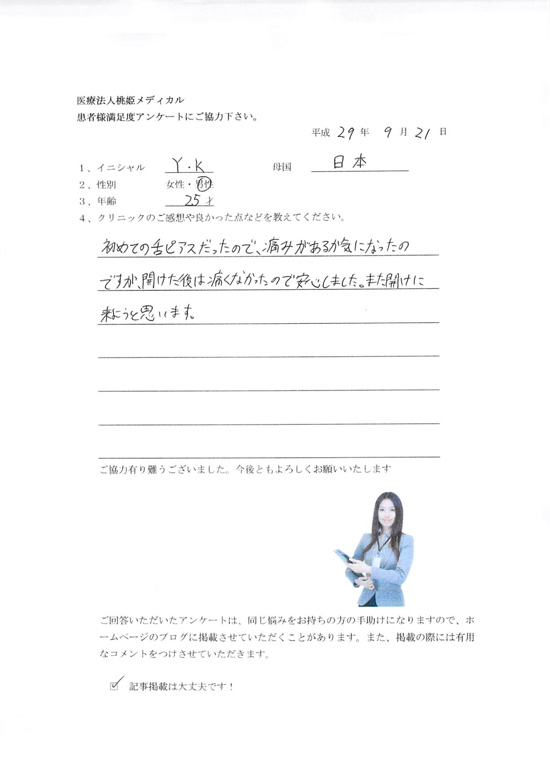 医療法人桃姫メディカル
患者様満足度アンケートにご協力下さい。
平成 29 年 9 月 21 日
1、イニシャル Y・K 母国 日本
2、性別 女性・男性
3、年齢 25才
4、クリニックのご感想や良かった点などを教えてください。
初めての舌ピアスだったので、痛みがあるか気になったの
ですが、開けた後は痛くなかったので安心しました。また開けに
来ようと思います。
ご協力有り難うございました。今後ともよろしくお願いいたします
ご回答いただいたアンケートは、同じ悩みをお持ちの方の手助けになりますので、ホ
ームページのブログに掲載させていただくことがあります。また、掲載の際には有用
なコメントをつけさせていただきます。
☑ 記事掲載は大丈夫です！